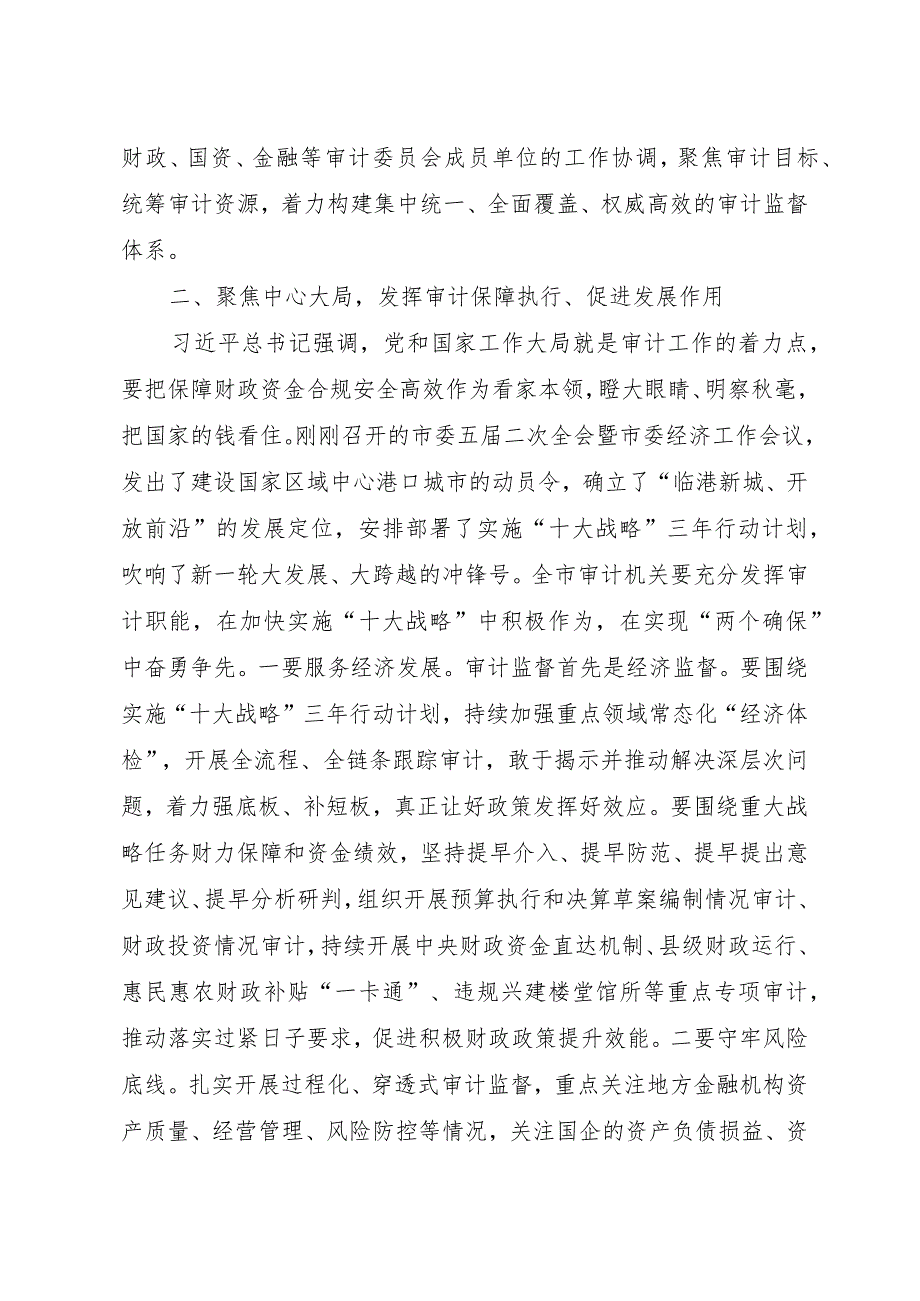 财政、国资、金融等审计委员会成员单位的工作协调，聚焦审计目标、
统筹审计资源，着力构建集中统一、全面覆盖、权威高效的审计监督
体系。
二、聚焦中心大局，发挥审计保障执行、促进发展作用
习近平总书记强调，党和国家工作大局就是审计工作的着力点，
要把保障财政资金合规安全高效作为看家本领，瞪大眼睛、明察秋毫，
把国家的钱看住。刚刚召开的市委五届二次全会暨市委经济工作会议，
发出了建设国家区域中心港口城市的动员令，确立了“临港新城、开
放前沿”的发展定位，安排部署了实施“十大战略”三年行动计划，
吹响了新一轮大发展、大跨越的冲锋号。全市审计机关要充分发挥审
计职能，在加快实施“十大战略”中积极作为，在实现“两个确保”
中奋勇争先。一要服务经济发展。审计监督首先是经济监督。要围绕
实施“十大战略”三年行动计划，持续加强重点领域常态化“经济体
检”，开展全流程、全链条跟踪审计，敢于揭示并推动解决深层次问
题，着力强底板、补短板，真正让好政策发挥好效应。要围绕重大战
略任务财力保障和资金绩效，坚持提早介入、提早防范、提早提出意
见建议、提早分析研判，组织开展预算执行和决算草案编制情况审计、
财政投资情况审计，持续开展中央财政资金直达机制、县级财政运行、
惠民惠农财政补贴“一卡通”、违规兴建楼堂馆所等重点专项审计，
推动落实过紧日子要求，促进积极财政政策提升效能。二要守牢风险
底线。扎实开展过程化、穿透式审计监督，重点关注地方金融机构资
产质量、经营管理、风险防控等情况，关注国企的资产负债损益、资